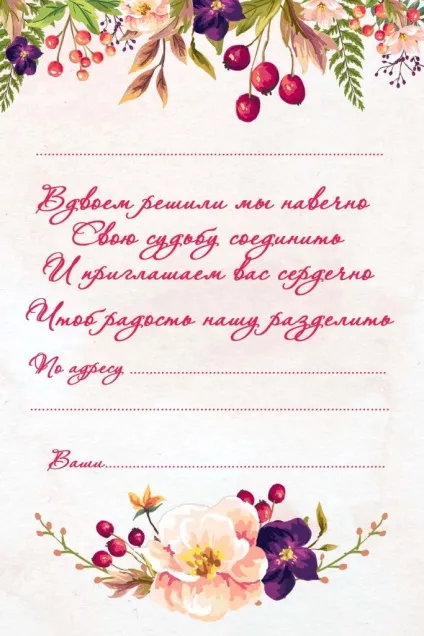 Вдвоем решили мы навечно
Свою судьбу соединить
И приглашаем вас сердечно
Чтоб радость нашу разделить
По адресу
Ваши